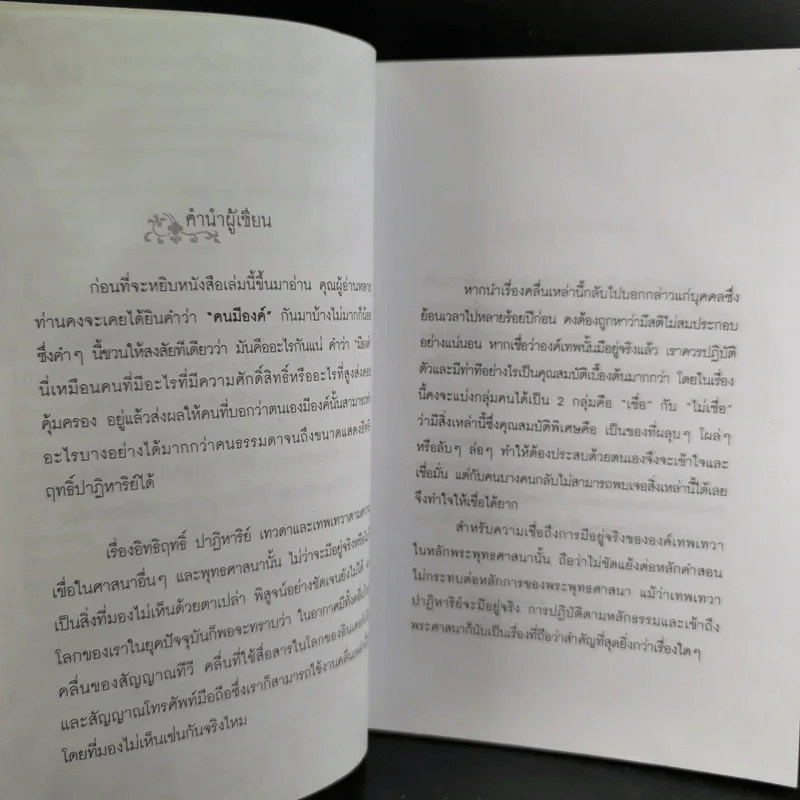 คำนำผู้เขียน
ก่อนที่จะหยิบหนังสือเล่มนี้ขึ้นมาอ่าน คุณผู้อ่านหลาย
ท่านคงจะเคยได้ยินคำว่า "คนมีองค์" กันมาบ้างไม่มากก็น้อย
ซึ่งคำๆ นี้ชวนให้สงสัยทีเดียวว่า มันคืออะไรกันแน่ คำว่า "มีองค์"
นี่เหมือนคนที่มีอะไรที่มีความศักดิ์สิทธิ์หรืออะไรที่สูงส่งคอย
คุ้มครอง อยู่แล้วส่งผลให้คนที่บอกว่าตนเองมีองค์นั้นสามารถทำ
อะไรบางอย่างได้มากกว่าคนธรรมดาจนถึงขนาดแสดงอิทธิ
ฤทธิ์ปาฏิหาริย์ได้
เรื่องอิทธิฤทธิ์ ปาฏิหาริย์ เทวดาและเทพเทวาตามความ
เชื่อในศาสนาอื่นๆ และพุทธศาสนานั้น ไม่ว่าจะมีอยู่จริงหรือไม่
เป็นสิ่งที่มองไม่เห็นด้วยตาเปล่า พิสูจน์อย่างชัดเจนยังไม่ได้
โลกของเราในยุคปัจจุบันก็พอจะทราบว่า ในอากาศมีทั้งคลื่น
คลื่นของสัญญาณทีวี คลื่นที่ใช้สื่อสารในโลกของอินเตอร์เน็ต
และสัญญาณโทรศัพท์มือถือซึ่งเราก็สามารถใช้งานคลื่นเหล่านี้
โดยที่มองไม่เห็นเช่นกันจริงไหม
หากนำเรื่องคลื่นเหล่านี้กลับไปบอกกล่าวแก่บุคคลซึ่ง
ย้อนเวลาไปหลายร้อยปีก่อน คงต้องถูกหาว่ามีสติไม่สมประกอบ
อย่างแน่นอน หากเชื่อว่าองค์เทพนั้นมีอยู่จริงแล้ว เราควรปฏิบัติ
ตัวและมีท่าทีอย่างไรเป็นคุณสมบัติเบื้องต้นมากกว่า โดยในเรื่อง
นี้คงจะแบ่งกลุ่มคนได้เป็น 2 กลุ่มคือ "เชื่อ" กับ "ไม่เชื่อ"
ว่ามีสิ่งเหล่านี้ซึ่งคุณสมบัติพิเศษคือ เป็นของที่ผลุบๆ โผล่ๆ
หรือลับๆ ล่อๆ ทำให้ต้องประสบด้วยตนเองจึงจะเข้าใจและ
เชื่อมั่น แต่กับคนบางคนกลับไม่สามารถพบเจอสิ่งเหล่านี้ได้เลย
จึงทำใจให้เชื่อได้ยาก
สำหรับความเชื่อถึงการมีอยู่จริงขององค์เทพเทวา
ในหลักพระพุทธศาสนานั้น ถือว่าไม่ขัดแย้งต่อหลักคำสอน
ไม่กระทบต่อหลักการของพระพุทธศาสนา แม้ว่าเทพเทวา
ปาฏิหาริย์จะมีอยู่จริง การปฏิบัติตามหลักธรรมและเข้าถึง
พระศาสนาก็นับเป็นเรื่องที่ถือว่าสำคัญที่สุดยิ่งกว่าเรื่องใดๆ